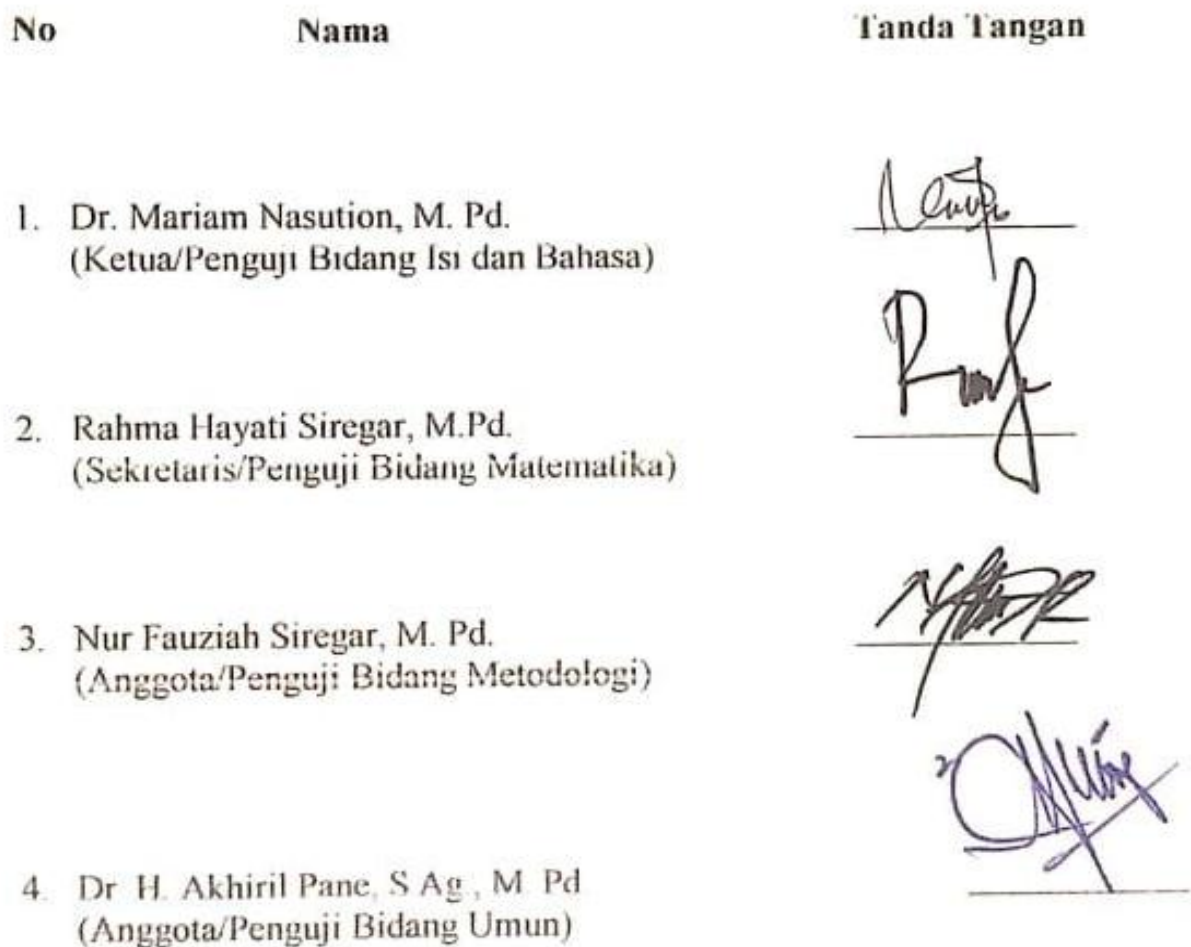 No Nama Tanda Tangan
1. Dr. Mariam Nasution, M. Pd.
(Ketua/Penguji Bidang Isi dan Bahasa)
2. Rahma Hayati Siregar, M.Pd.
(Sekretaris/Penguji Bidang Matematika)
3. Nur Fauziah Siregar, M. Pd.
(Anggota/Penguji Bidang Metodologi)
4. Dr H. Akhiril Pane, S Ag , M Pd
(Anggota/Penguji Bidang Umun)